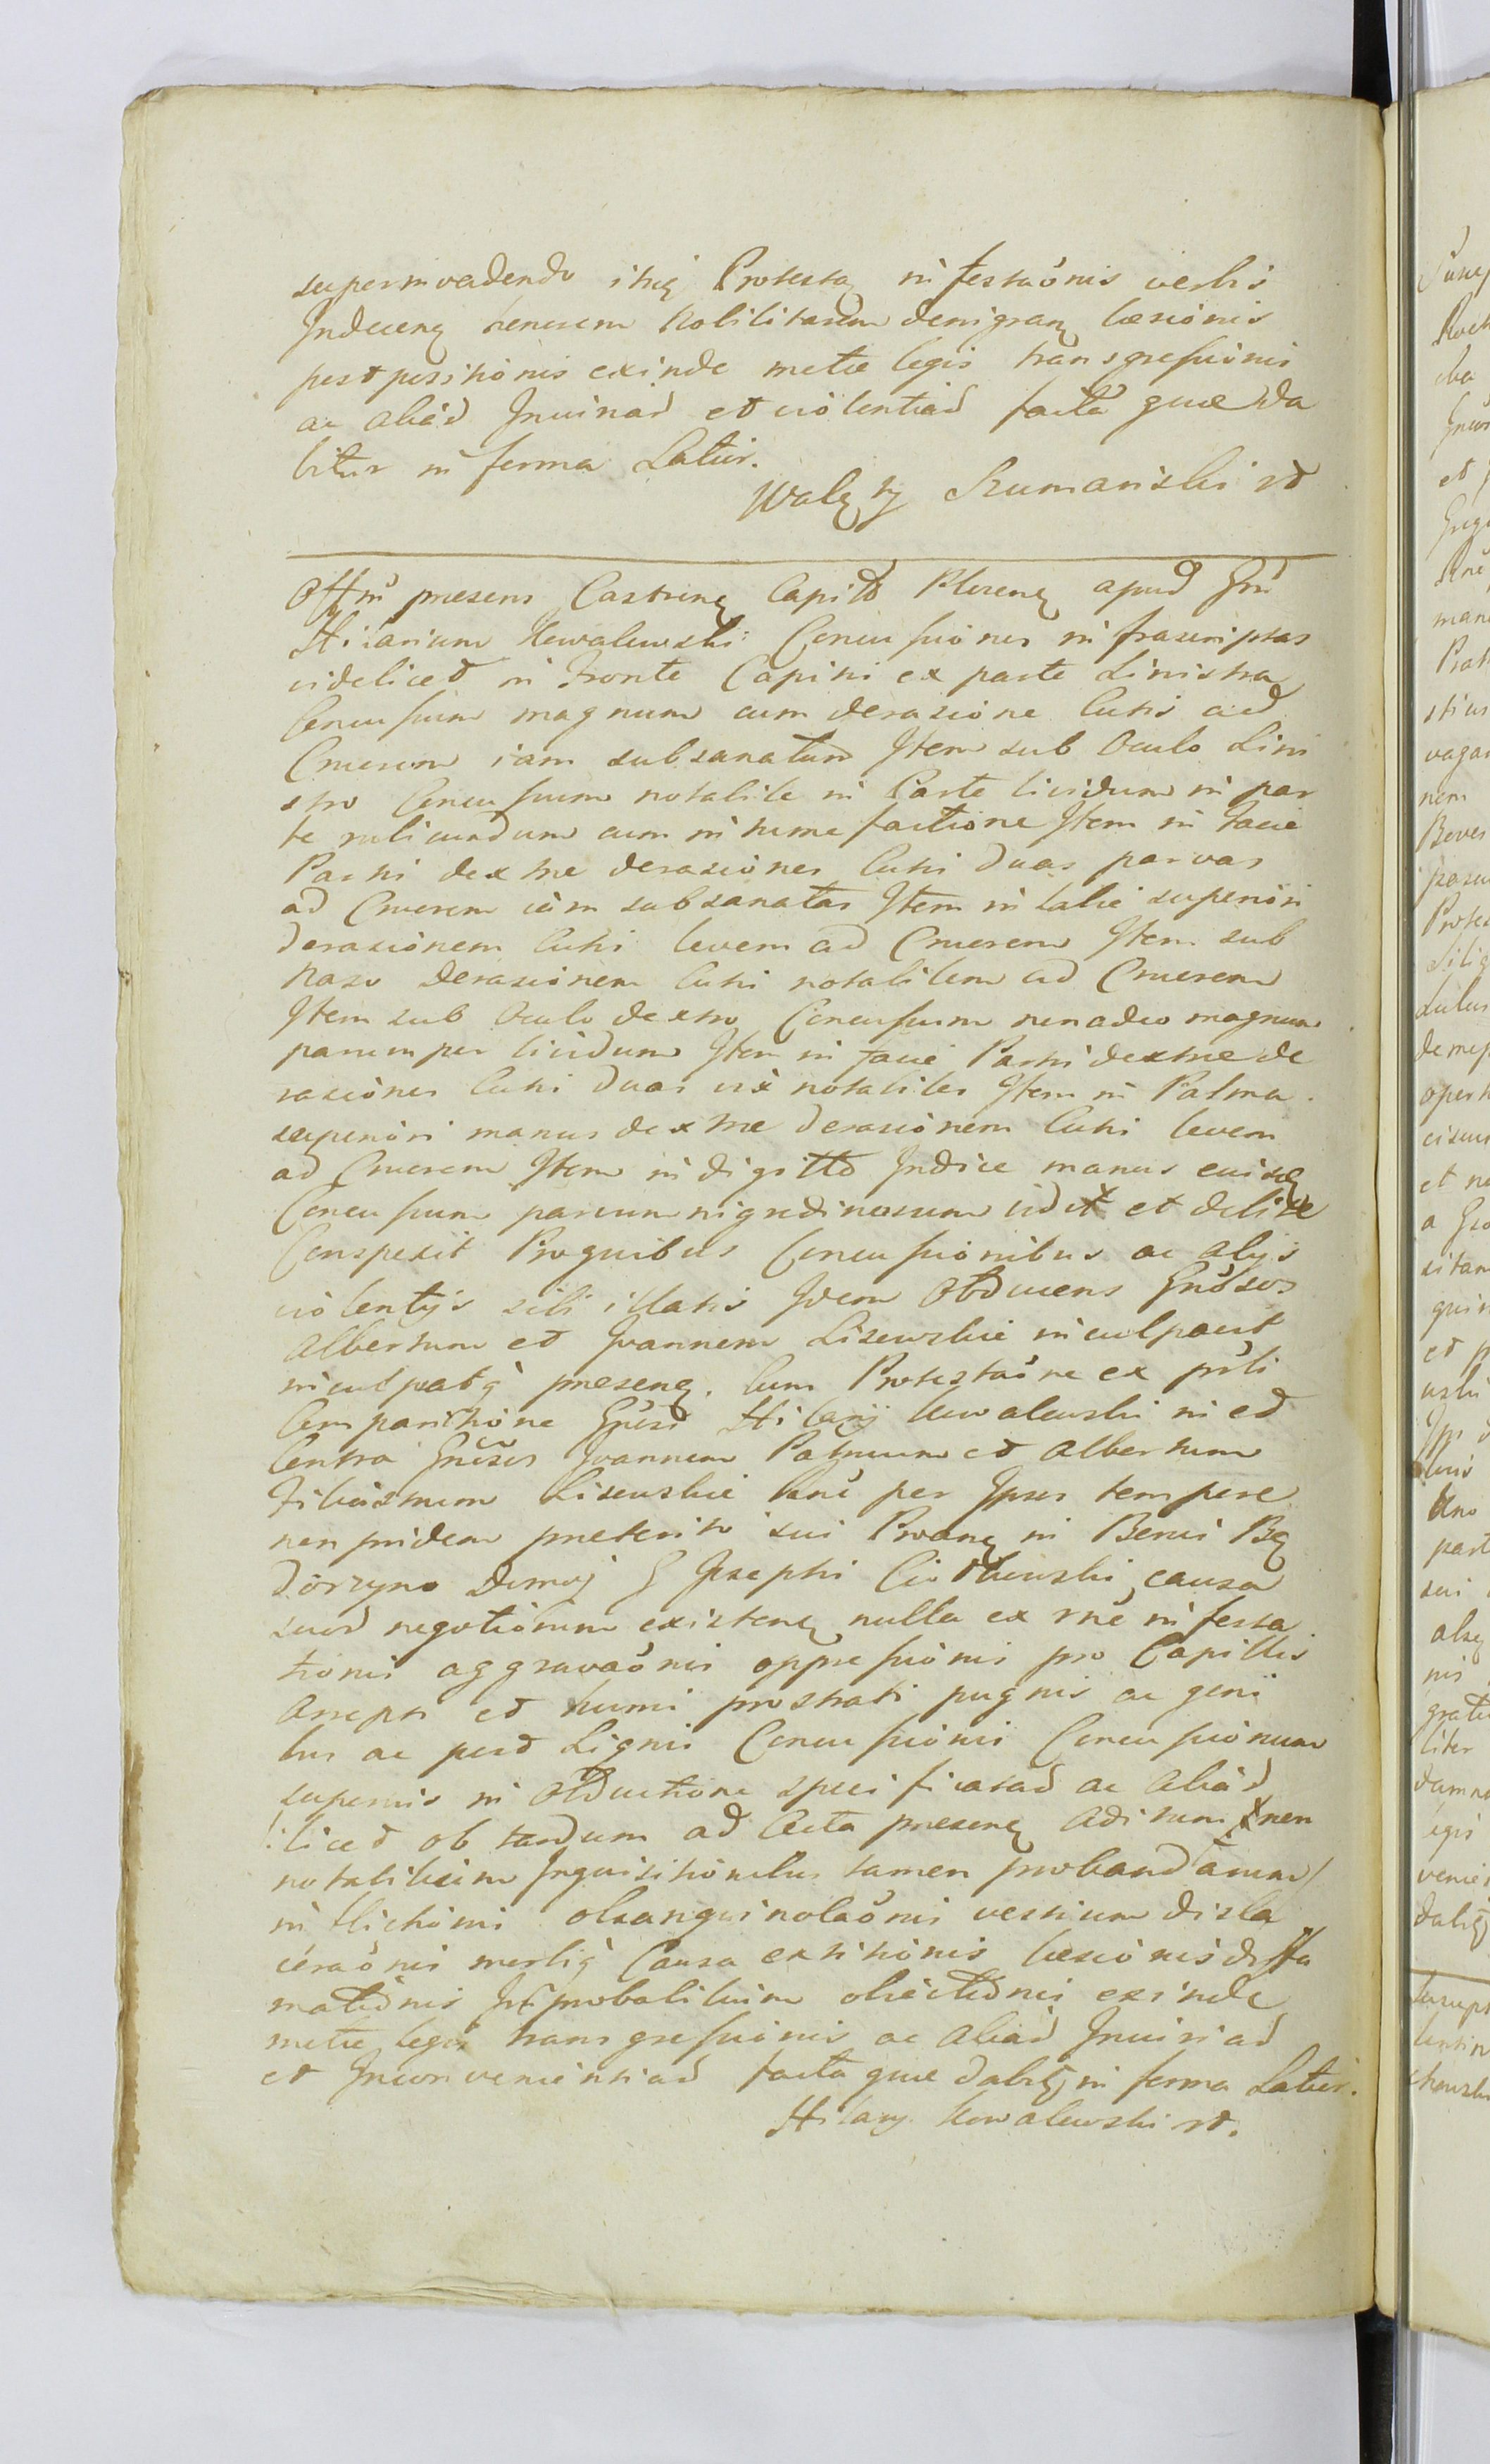 superinvadendo itiq Protestaq infestaõnis verbis
Indecenq henorem Nobilitarem denigranq læsionis
postpositionis exinde metæ legis transgressionis
ac aliãd Iniuriad et violentiad facta quæ da
bitur in forma Latior.
Walęty Szumański rd
Offm̃ præsens Castrenq Capitð Plocenq apud Gnm̃
Hilarium Kowalewski Concussiones infrascriptas
videliced in Fronte Capiti ex parte Sinistra
Concussum magnum cum derasione Cutis ad
Cruorem iam subsanatum Item sub Oculo Sini
stro Concussum notabile in Parte lividum in par
te rubicundum cum intumefactione Item in Facie
Parti dextræ derasiones Cuti duas parvas
ad Cruorem iam subsanatas Item in labie superiori
derasionem Cuti levem ad Cruorem Item sub
Naso Derasionem Cuti notabilem ad Cruorem
Item sub Oculo dextro Concussum non adeo magnum
parumper lividum Item in facie Parti dextræ de
rasiones Cuti duas vix notabiles Item in Palma
superiori manus dextræ derasionem Cuti levem
ad Cruorem Item in digitto Indice manus euisdq
Concussum parvum nigredinosum vidit et debite
Conspexit Pro quibus Concussionibus ac alijs
violentijs sibi illatis Idem Obducens Gnõsos
Albertum et Joannem Lisewskie inculpavit
inculpatq præsenq. Cum Protestaõne ex prt̃i
Comparitione Gnõsi Hilarij Kowalewski in ed
Contra Gnõsos Joannem Patrem et Albertum
Filium Lisewskie rõne per Ipsos tempore
non pridem præterito sui Protanq in Bonis Bę
dorzyno Domoj G Josephi Ciothowski causa
suod negotiorum existenq nulla ex rne infesta
tionis aggravaõnis oppressionis pro Capillis
arrepti et humi prostrati pugnis ac geni
bus ac perd Lignis Concussionis Concussionum
superius in Obductione specificatad ac aliãd
/:liced ob tardum ad Acta præsenq aditum non
notabilium Inquisitionibus tamen probandarum/
inflictionis obsanguinolaõnis vestium disla
ceraõnis mortisq Causa extitionis læsionis diffa
mationis Improbabilium obiectionis exinde
metæ legis transgressionis ac aliãd Iniuriad
et Inconvenientiad facta quæ dabitq in forma Latior.
Hilary Kowalewski rd.